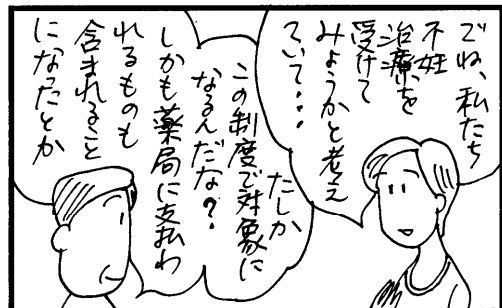 でね、私たち
不妊
治療を
受けて
みようかと考え
ていて・・・
たしか
この制度で対象に
なるんだな?
しかも薬局に支払わ
れるものも
含まれること
になったとか